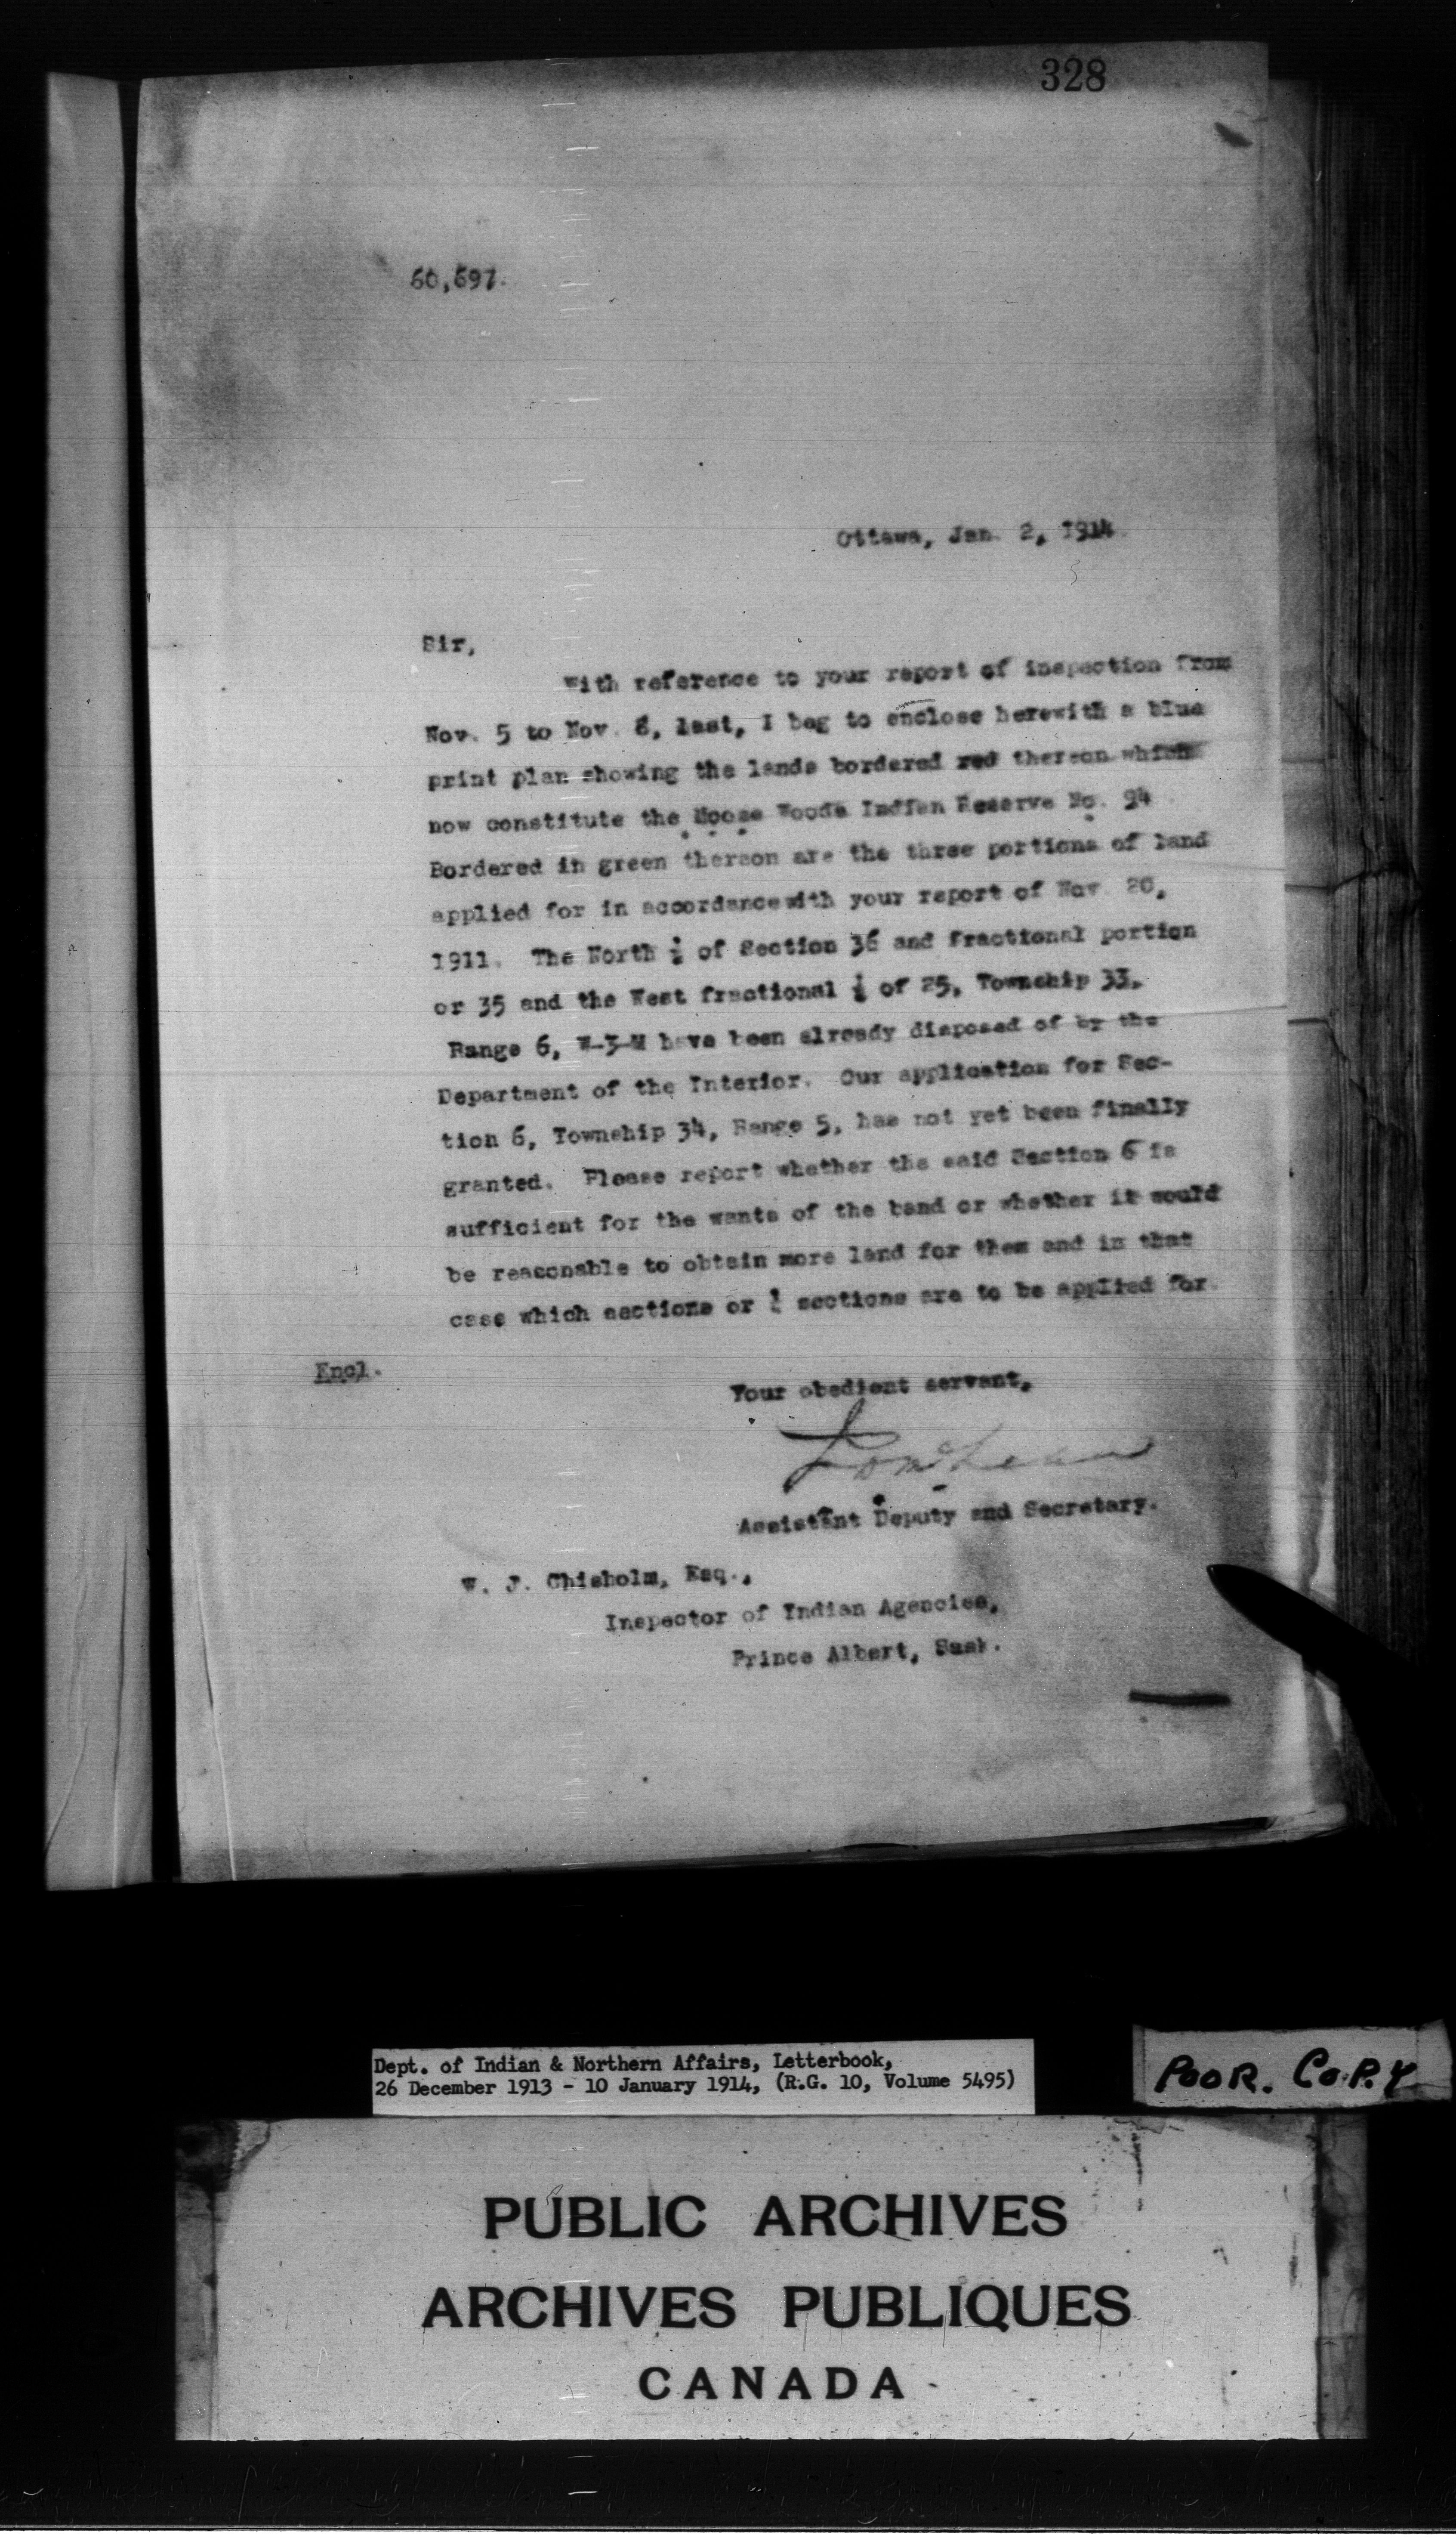 328
60,697.
Ottawa, Jan. 2, 1914.
Sir,
With reference to your report of inspection from
Nov. 5 to Nov. 8, last, I beg to enclose herewith a blue
print plan showing the lands bordered red thereon which
now constitute the Moose Woods Indian Reserve No. 94
Bordered in green thereon are the three portions of land
applied for in accordancewith your report of Nov. 20,
1911. The North ½ of Section 36 and fractional portion
or 35 and the West fractional ½ of 25, Township 33,
Range 6, W-3-M have been already disposed of by the
Department of the Interior. Our application for Sec-
tion 6, Township 34, Range 5, has not yet been finally
granted. Please report whether the said Section 6 is
sufficient for the wants of the band or whether it would
be reasonable to obtain more land for them and in that
case which sections or ¼ sections are to be applied for.
Encl.
Your obedient servant,
Assistant Deputy and Secretary.
W. J. Chisholm, Esq.,
Inspector of Indian Agencies,
Prince Albert, Sask.
Dept. of Indian & Northern Affairs, Letterbook,
26 December 1913 - 10 January 1914, (R.G. 10, Volume 5495)
POOR. COPY
PUBLIC ARCHIVES
ARCHIVES PUBLIQUES
CANADA